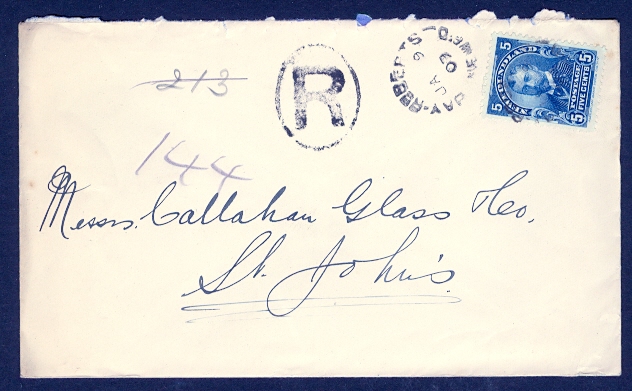 213
R
BAY-ROBERTS
JA 9
03
NEWF'D
5 5
NEWFOUNDLAND
POSTAGE
FIVE CENTS
5 5
144
Messrs. Callahan Glass & Co.
St. John's.